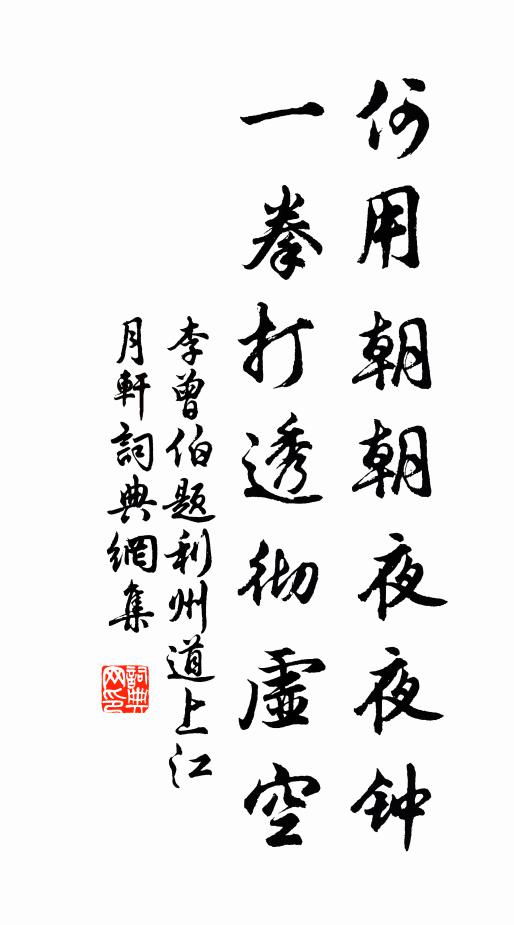 何用朝朝夜夜钟
一拳打透彻虚空
李曾伯题利州道上江
月軒詞典網集
詞典
网印